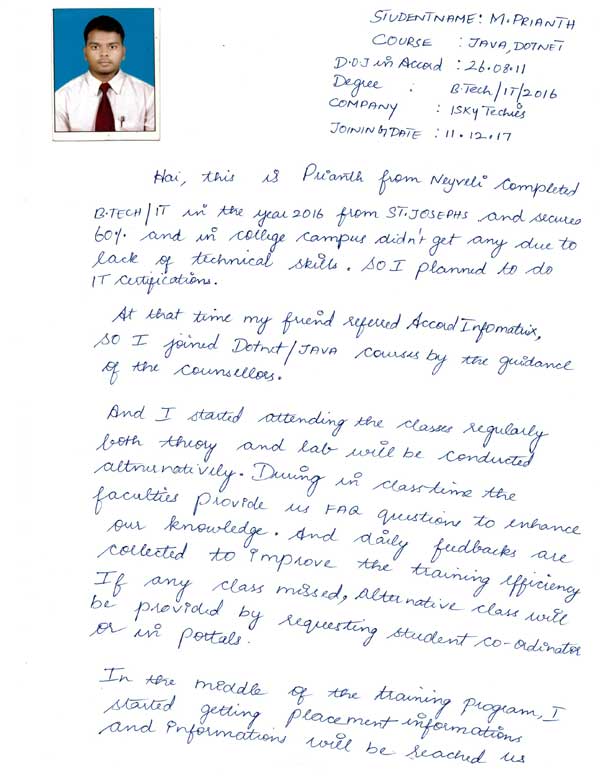 STUDENTNAME: M.PRIANTH
COURSE : JAVA, DOTNET
D.O.J in Accord : 26.08.11
Degree : B.Tech/IT/2016
COMPANY : ISKY Techies
JOINING DATE : 11.12.17
Hai, this is Prianth from Neyveli completed
B.TECH/IT in the year 2016 from ST.JOSEPHS and secures
60% and in college campus didn't get any due to
lack of technical skills. So I planned to do
IT certifications.
At that time my friend referred Accord Infomatrix,
so I joined Dotnet/JAVA courses by the guidance
of the counsellors.
And I started attending the classes regularly
both theory and lab will be conducted
altnurnatively. During in class-time the
faculties provide us FAQ questions to enhance
our knowledge. And daily feedbacks are
collected to improve the training efficiency
If any class missed, Alternative class will
be provided by requesting student co-ordinator
or in portals.
In the middle of the training program, I
started getting placement informations
and informations will be reached us